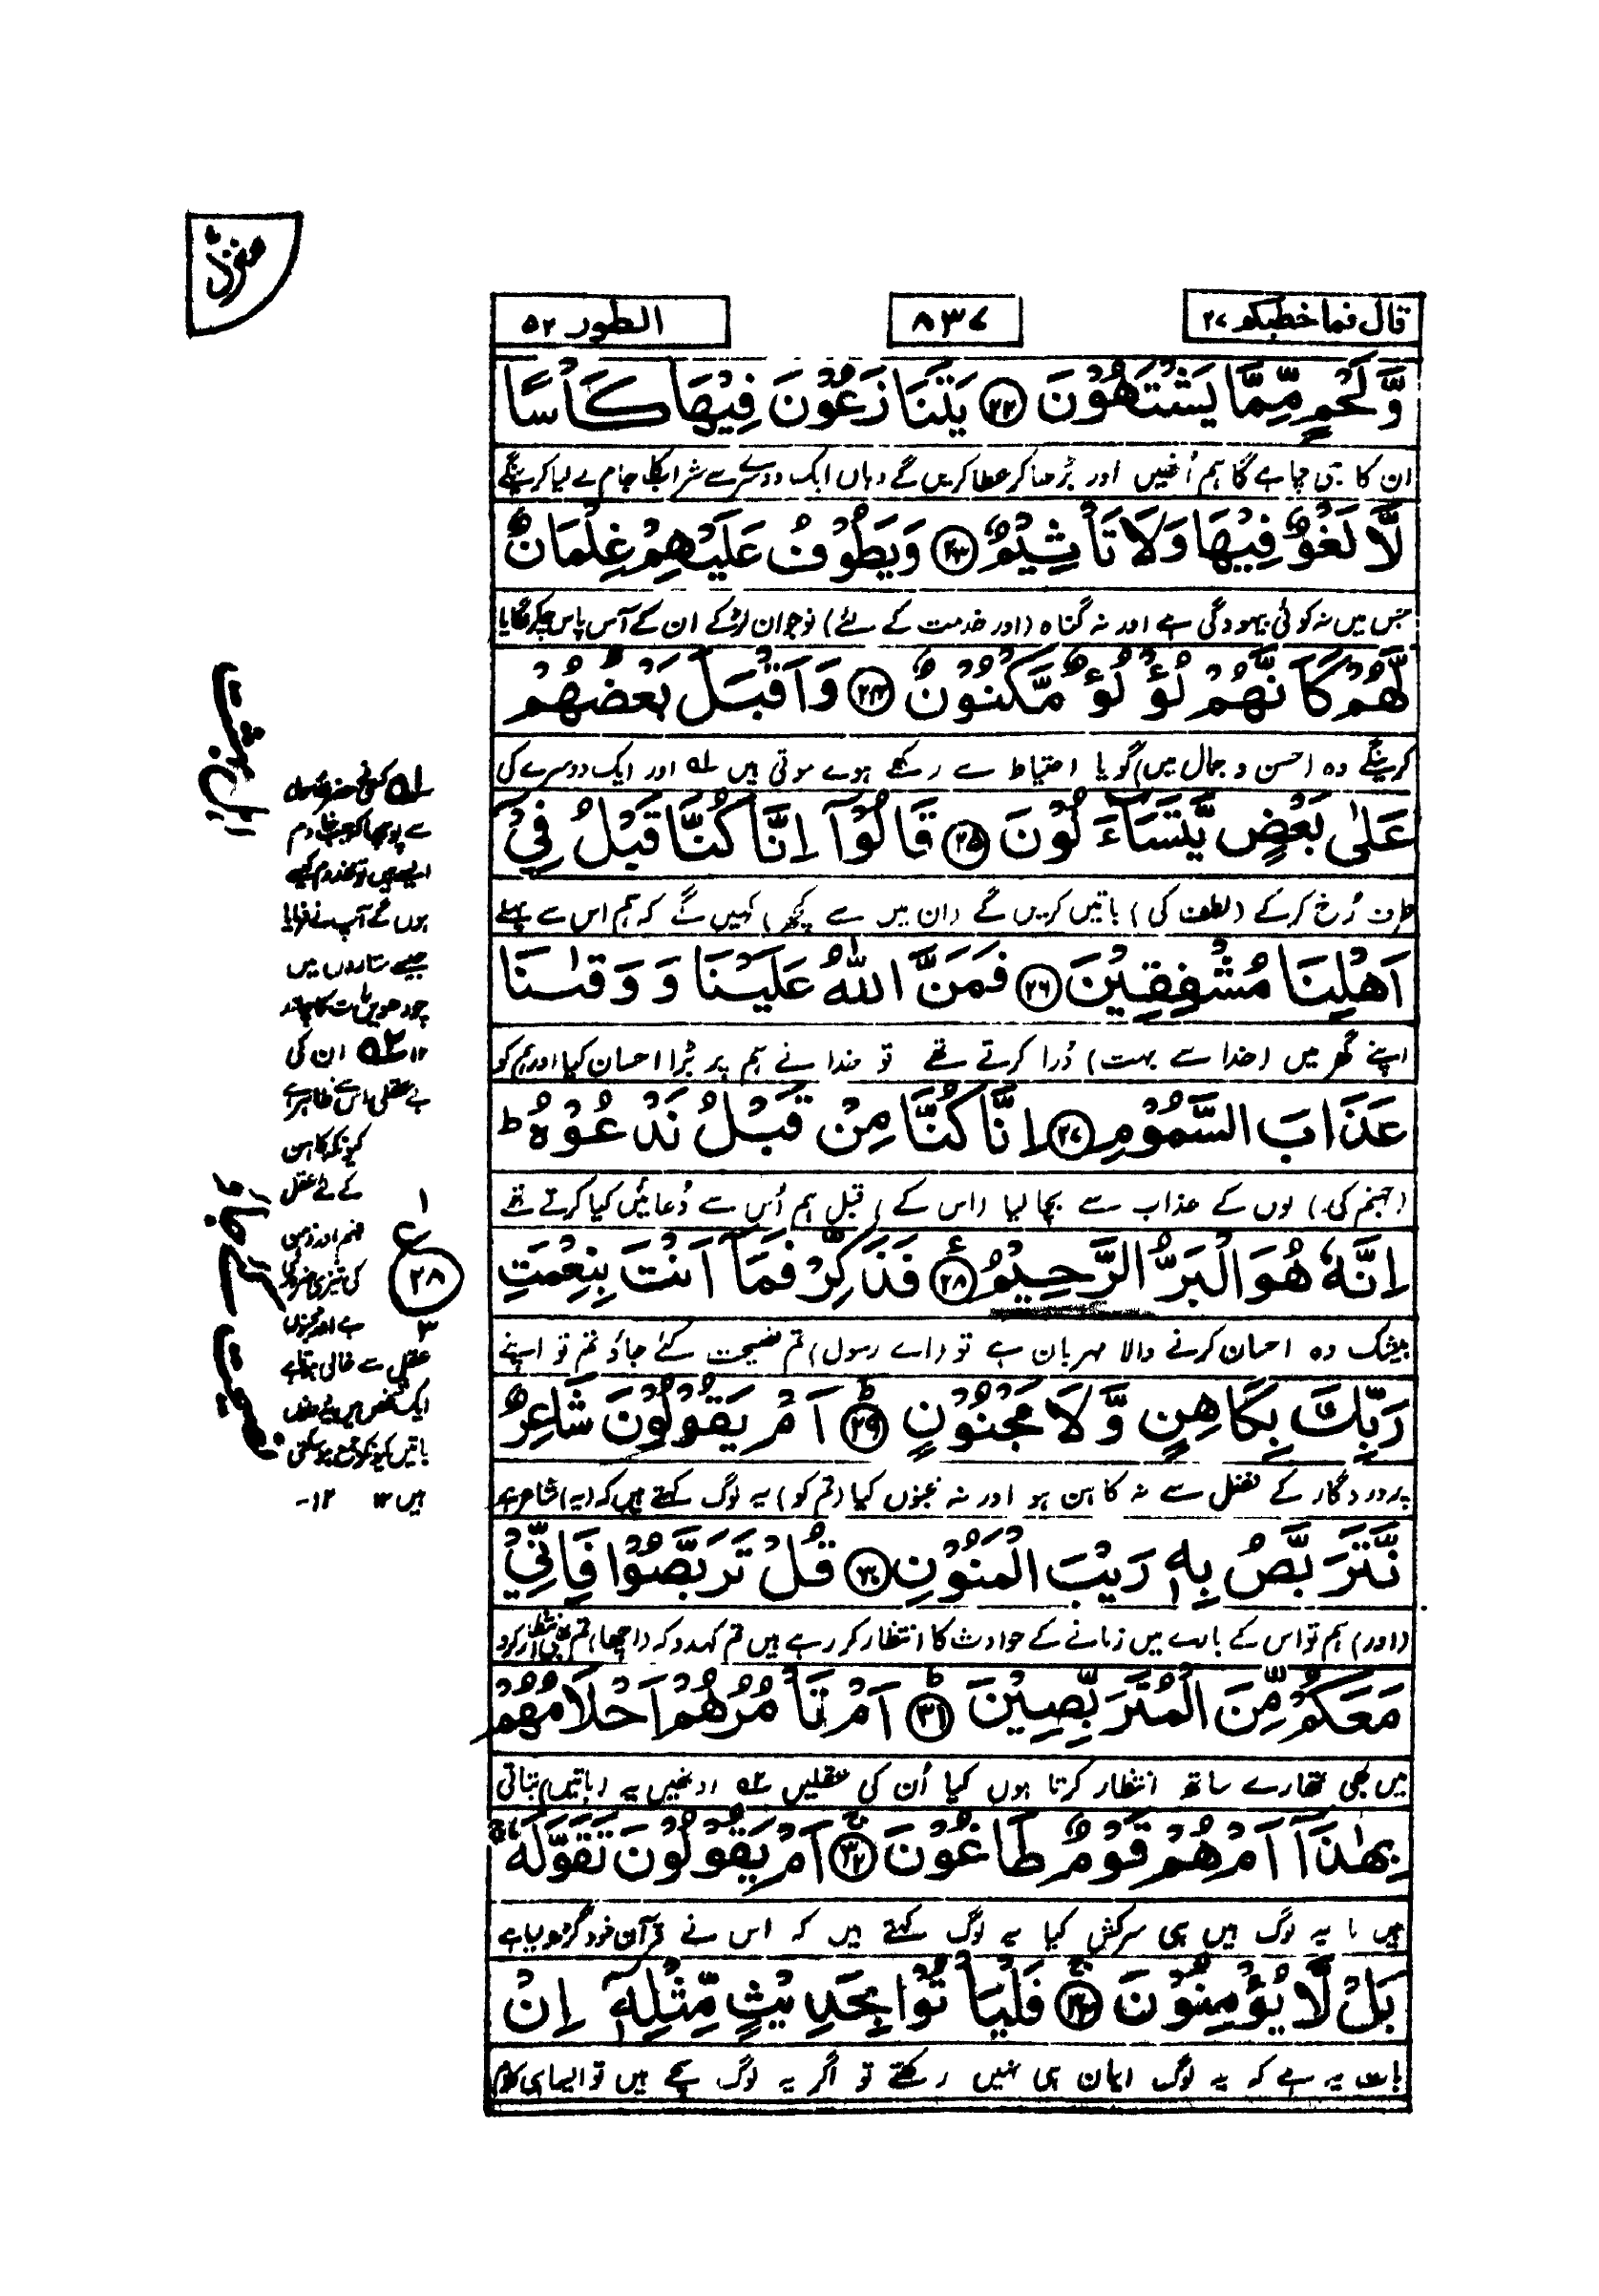 قال فما خطبکم ۲۷
۸۳۷
الطور ۵۲
وَّلَحۡمٍ مِّمَّا يَشۡتَهُوۡنَ ﴿۲۲﴾ يَتَنَازَعُوۡنَ فِيۡهَا كَاۡسًا
ان کا جی چاہے گا ہم اُنھیں اور بڑھا کر عطا کریں گے وہاں ایک دوسرے سے شراب کا جام لے لیا کرینگے
لَّا لَغۡوٌ فِيۡهَا وَلَا تَاۡثِيۡمٌ ﴿۲۳﴾ وَيَطُوۡفُ عَلَيۡهِمۡ غِلۡمَانٌ
جس میں نہ کوئی بیہودگی ہے اور نہ گناہ (اور خدمت کے لئے) نوجوان لڑکے ان کے آس پاس چکر لگایا
لَّهُمۡ كَاَنَّهُمۡ لُؤۡلُؤٌ مَّكۡنُوۡنٌ ﴿۲۴﴾ وَاَقۡبَلَ بَعۡضُهُمۡ
کرینگے وہ (حسن و جمال میں) گویا احتیاط سے رکھے ہوے موتی ہیں ۱ اور ایک دوسرے کی
عَلٰى بَعۡضٍ يَّتَسَآءَلُوۡنَ ﴿۲۵﴾ قَالُوۡۤا اِنَّا كُنَّا قَبۡلُ فِىۡۤ
طرف رُخ کرکے (لطف کی) باتیں کریں گے (ان میں سے کچھ) کہیں گے کہ ہم اس سے پہلے
اَهۡلِنَا مُشۡفِقِيۡنَ ﴿۲۶﴾ فَمَنَّ اللّٰهُ عَلَيۡنَا وَ وَقٰىنَا
اپنے گھر میں (خدا سے بہت) ڈرا کرتے تھے تو خدا نے ہم پر بڑا احسان کیا اور ہم کو
عَذَابَ السَّمُوۡمِ ﴿۲۷﴾ اِنَّا كُنَّا مِنۡ قَبۡلُ نَدۡعُوۡهُ ؕ
(جہنم کی) لوں کے عذاب سے بچا لیا (اس کے) قبل ہم اُس سے دُعائیں کیا کرتے تھے
اِنَّهٗ هُوَ الۡبَرُّ الرَّحِيۡمُ ﴿۲۸﴾ فَذَكِّرۡ فَمَاۤ اَنۡتَ بِنِعۡمَتِ
بیشک وہ احسان کرنے والا مہربان ہے تو (اے رسول) تم نصیحت کئے جاؤ تم تو اپنے
رَبِّكَ بِكَاهِنٍ وَّلَا مَجۡنُوۡنٍ ﴿۲۹﴾ اَمۡ يَقُوۡلُوۡنَ شَاعِرٌ
پروردگار کے فضل سے نہ کاہن ہو اور نہ مجنوں کیا (تم کو) یہ لوگ کہتے ہیں کہ (یہ) شاعر ہے
نَّتَرَبَّصُ بِهٖ رَيۡبَ الۡمَنُوۡنِ ﴿۳۰﴾ قُلۡ تَرَبَّصُوۡا فَاِنِّىۡ
(اور) ہم تو اس کے بارے میں زمانے کے حوادث کا انتظار کر رہے ہیں تم کہدو کہ (اچھا) تم بھی انتظار کرو
مَعَكُمۡ مِّنَ الۡمُتَرَبِّصِيۡنَ ﴿۳۱﴾ اَمۡ تَاۡمُرُهُمۡ اَحۡلَامُهُمۡ
میں بھی تمھارے ساتھ انتظار کرتا ہوں کیا اُن کی عقلیں ۲ انہیں یہ (باتیں) بتاتی
بِهٰذَاۤ اَمۡ هُمۡ قَوۡمٌ طَاغُوۡنَ ﴿۳۲﴾ اَمۡ يَقُوۡلُوۡنَ تَقَوَّلَهٗ ۚ
ہیں یا یہ لوگ ہیں ہی سرکش کیا یہ لوگ کہتے ہیں کہ اس نے قرآن خود گڑھ لیا ہے
بَلۡ لَّا يُؤۡمِنُوۡنَ ﴿۳۳﴾ فَلۡيَاۡتُوۡا بِحَدِيۡثٍ مِّثۡلِهٖۤ اِنۡ
بات یہ ہے کہ یہ لوگ ایمان ہی نہیں رکھتے تو اگر یہ لوگ سچے ہیں تو ایسا ہی کلام
۱ کسی نے حضرت رسول
سے پوچھا کہ جب خادم
ایسے ہیں تو مخدوم کیسے
ہوں گے آپ نے فرمایا
جیسے ستاروں میں
چودھویں رات کا چاند
۱۲ ۲ ان کی
بے عقلی اس سے ظاہر ہے
کیونکہ کاہن
کے لئے عقل
فہم اور ذہن
کی تیزی ضرور
ہے اور مجنوں
عقل سے خالی ہوتا ہے
ایک شخص میں
باتیں کیونکر جمع ہو سکتی
ہیں ۱۲ ۱۲-
۱
ع
۲۸
۳